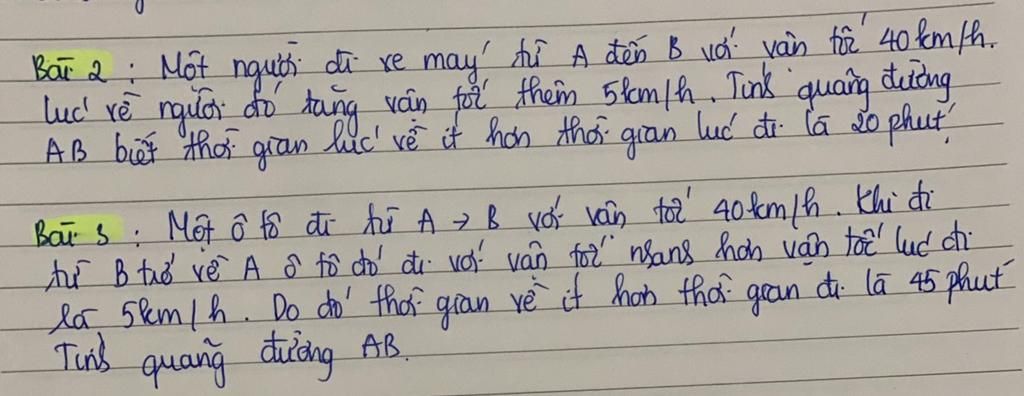 Bài 2 : Một người đi xe máy từ A đến B với vận tốc 40km/h.
lúc về người đó tăng vận tốc thêm 5km/h. Tính quãng đường
AB biết thời gian lúc về ít hơn thời gian lúc đi là 20 phút.
Bài 3 : Một ô tô đi từ A → B với vận tốc 40km/h. Khi đi
từ B trở về A ô tô đó đi với vận tốc nhanh hơn vận tốc lúc đi
là 5km/h. Do đó thời gian về ít hơn thời gian đi là 45 phút
Tính quãng đường AB.